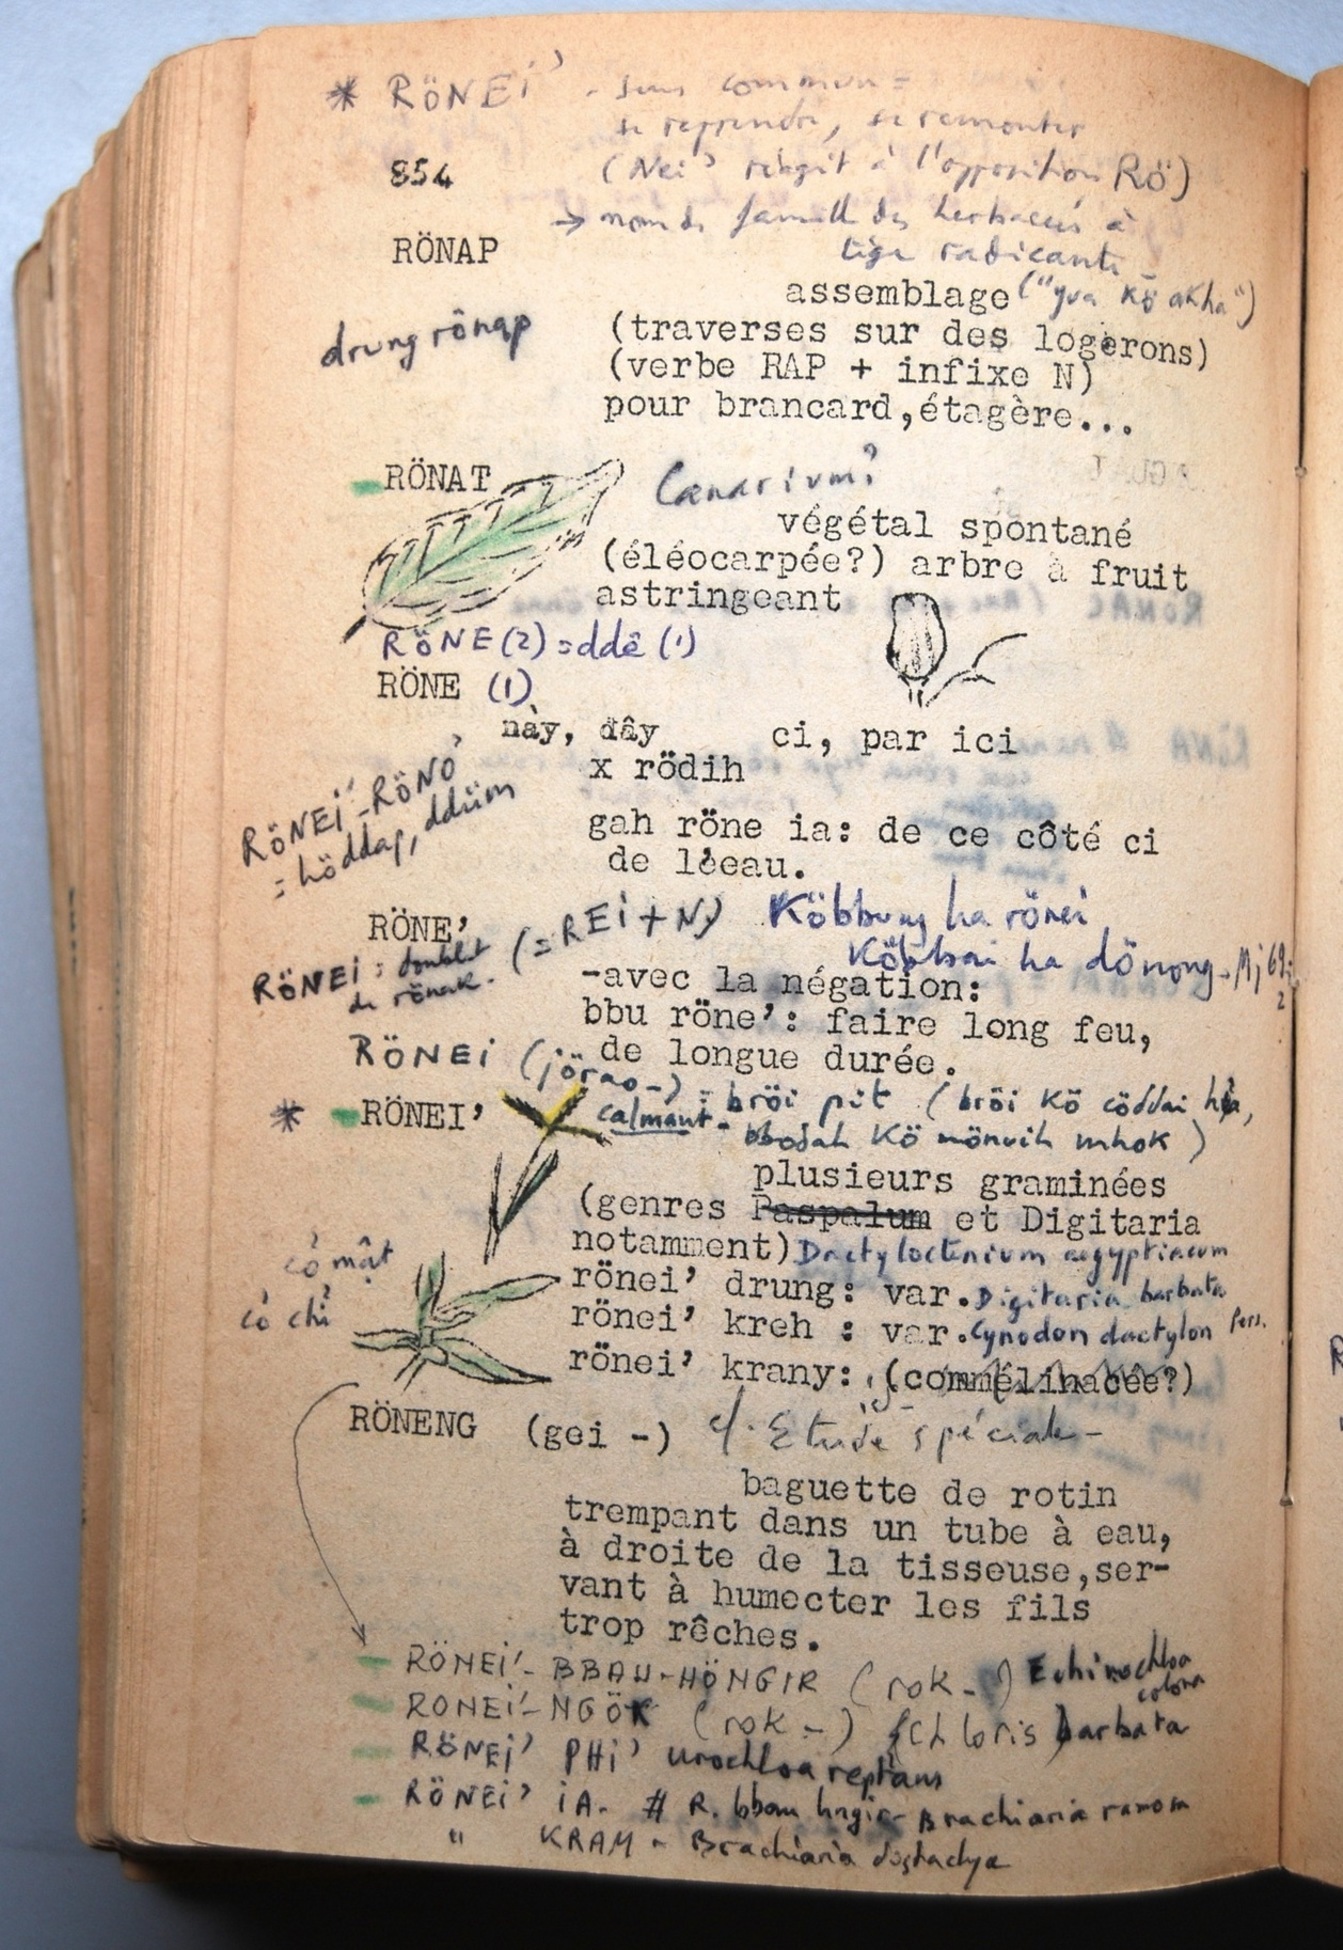 * RÖNEI' - sens commun =
se reprendre, se remonter
854 (Nei' réagit à l'opposition RÖ)
→ nom de famille des herbacées à
RÖNAP tige radicante -
assemblage ("yua kö akha")
drung rönap (traverses sur des logerons)
(verbe RAP + infixe N)
pour brancard,étagère...
RÖNAT Canarium?
végétal spontané
(éléocarpée?) arbre à fruit
astringeant
RÖNE (2) = ddê (1)
RÖNE (1)
này, đây ci, par ici
x rödih
RÖNEI'-RÖNO'
= höddap, ddüm
gah röne ia: de ce côté ci
de l'eau.
RÖNE' (= REI + N) Köbbung ha rönei
Köbbai ha dönong - Mj 69:2
RÖNEI : doublet
de rönak.
-avec la négation:
bbu röne': faire long feu,
de longue durée.
RÖNEI (jörao-) = bröi pit (bröi kö cöddai hia,
calmant - bbodah kö mönuih mhok)
* RÖNEI'
plusieurs graminées
(genres Paspalum et Digitaria
notamment) Dactyloctenium aegyptiacum
cỏ mật
cỏ chỉ
rönei' drung: var. Digitaria barbata
rönei' kreh : var. Cynodon dactylon Pers.
rönei' krany: (commélinacée?)
RÖNENG (gei -) cf. Etude spéciale -
baguette de rotin
trempant dans un tube à eau,
à droite de la tisseuse,ser-
vant à humecter les fils
trop rêches.
RÖNEI'- BBAU-HÖNGIR (rok -) Echinochloa
colona
RONEI'-NGÖK (rok -) (Chloris barbata
RÖNEI' PHI' Urochloa reptans
RÖNEI' IA- # R. bbau hngir - Brachiaria ramosa
" KRAM - Brachiaria distachya